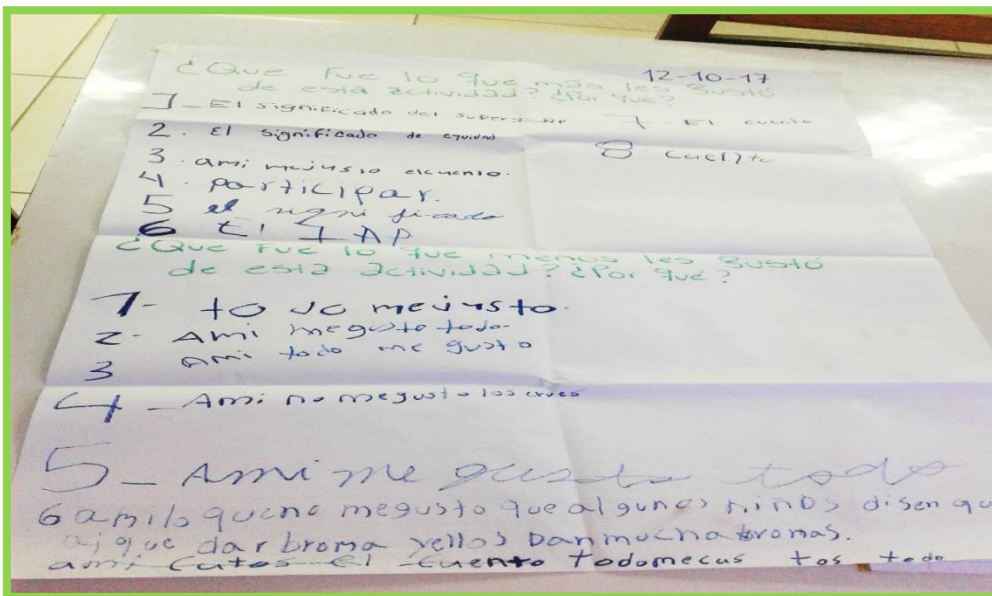 12-10-17
¿Que fue lo que mas les gustó
de esta actividad? ¿Por que?
1- El significado del
7- El cuento
2. El significado de equidad
8. cuento
3. ami mejusto elcuento.
4. participar.
5 el significado
6 El IAP
¿Que fue lo que menos les gustó
de esta actividad? ¿Por que?
1- todo mejusto.
2- Ami megusto todo
3 Ami todo me gusto
4- Ami no megusto los
5- Ami me gusto todo
6 amilo queno megusto que algunos niños disen qu
ajque dar broma yellos Danmucha bromas.
ami El cuento Todomecus tos todo